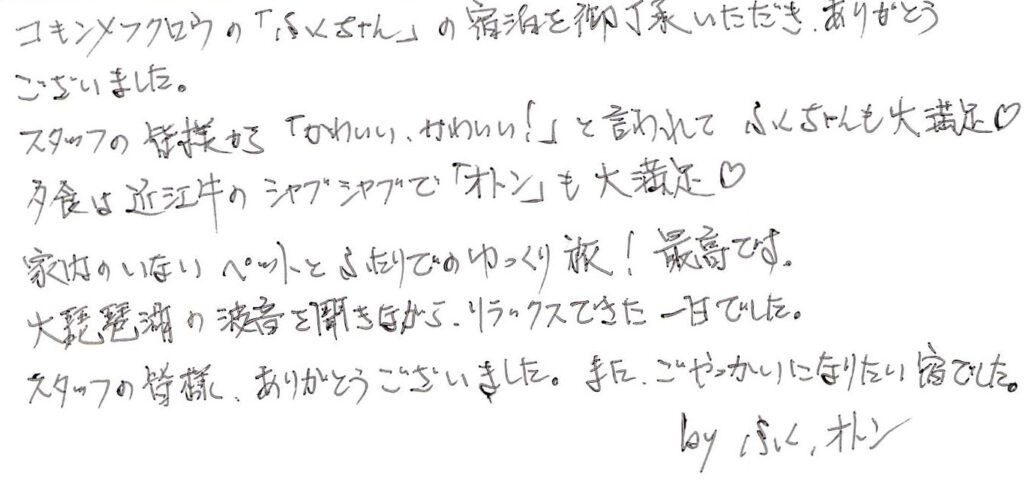 コキンメフクロウの「ふくちゃん」の宿泊を御了承いただき、ありがとう
ございました。
スタッフの皆様から「かわいい、かわいい!」と言われて ふくちゃんも大満足♡
夕食は近江牛のシャブシャブで「オトン」も大満足♡
家内のいない ペットとふたりでのゆっくり旅! 最高です。
大琵琶湖の波音を聞きながら、リラックスできた一日でした。
スタッフの皆様、ありがとうございました。また、ごやっかいになりたい宿でした。
by ふく、オトン